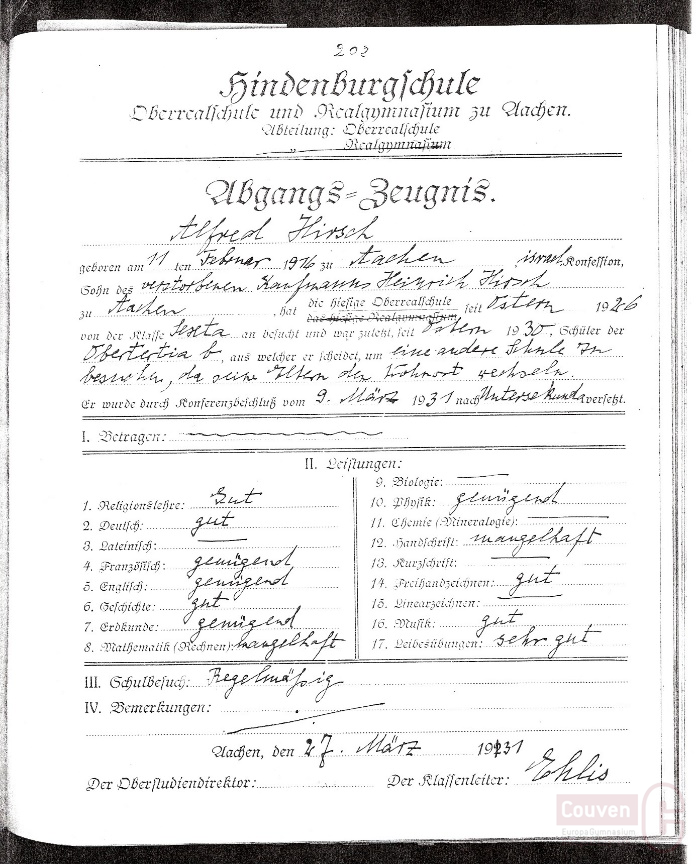 202
Hindenburgschule
Oberrealschule und Realgymnasium zu Aachen.
Abteilung: Oberrealschule
„ Realgymnasium
Abgangs-Zeugnis.
Alfred Hirsch
geboren am 11 ten Februar 1916 zu Aachen israel. Konfession,
Sohn des verstorbenen Kaufmanns Heinrich Hirsch
zu Aachen, hat die hiesige Oberrealschule das hiesige Realgymnasium seit Ostern 1926
von der Klasse Sexta an besucht und war zuletzt, seit Ostern 1930, Schüler der
Obertertia b, aus welcher er scheidet, um eine andere Schule zu
besuchen, da seine Eltern den Wohnort wechseln
Er wurde durch Konferenzbeschluß vom 9. März 1931 nach Untersekunda versetzt.
I. Betragen:
II. Leistungen:
1. Religionslehre: Gut
2. Deutsch: gut
3. Lateinisch: —
4. Französisch: genügend
5. Englisch: genügend
6. Geschichte: gut
7. Erdkunde: genügend
8. Mathematik (Rechnen): mangelhaft
9. Biologie: —
10. Physik: genügend
11. Chemie (Mineralogie): —
12. Handschrift: mangelhaft
13. Kurzschrift: —
14. Freihandzeichnen: gut
15. Linearzeichnen: —
16. Musik: gut
17. Leibesübungen: sehr gut
III. Schulbesuch: Regelmäßig
IV. Bemerkungen:
Aachen, den 27. März 1931
Der Oberstudiendirektor: Der Klassenleiter: Ehlis
Couven
EuropaGymnasium